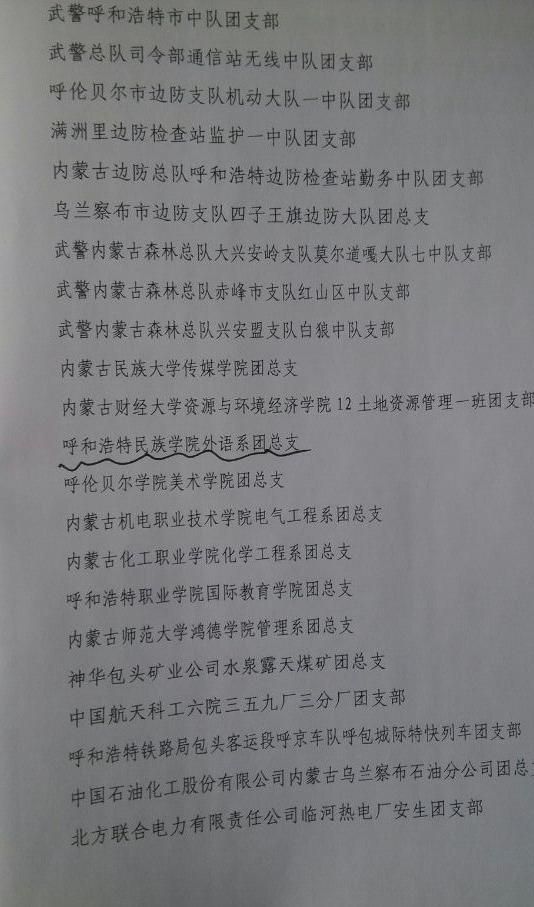 武警呼和浩特市中队团支部
武警总队司令部通信站无线中队团支部
呼伦贝尔市边防支队机动大队一中队团支部
满洲里边防检查站监护一中队团支部
内蒙古边防总队呼和浩特边防检查站勤务中队团支部
乌兰察布市边防支队四子王旗边防大队团总支
武警内蒙古森林总队大兴安岭支队莫尔道嘎大队七中队支部
武警内蒙古森林总队赤峰市支队红山区中队支部
武警内蒙古森林总队兴安盟支队白狼中队支部
内蒙古民族大学传媒学院团总支
内蒙古财经大学资源与环境经济学院12土地资源管理一班团支部
呼和浩特民族学院外语系团总支
呼伦贝尔学院美术学院团总支
内蒙古机电职业技术学院电气工程系团总支
内蒙古化工职业学院化学工程系团总支
呼和浩特职业学院国际教育学院团总支
内蒙古师范大学鸿德学院管理系团总支
神华包头矿业公司水泉露天煤矿团总支
中国航天科工六院三五九厂三分厂团支部
呼和浩特铁路局包头客运段呼京车队呼包城际特快列车团支部
中国石油化工股份有限公司内蒙古乌兰察布石油分公司团总支
北方联合电力有限责任公司临河热电厂安生团支部